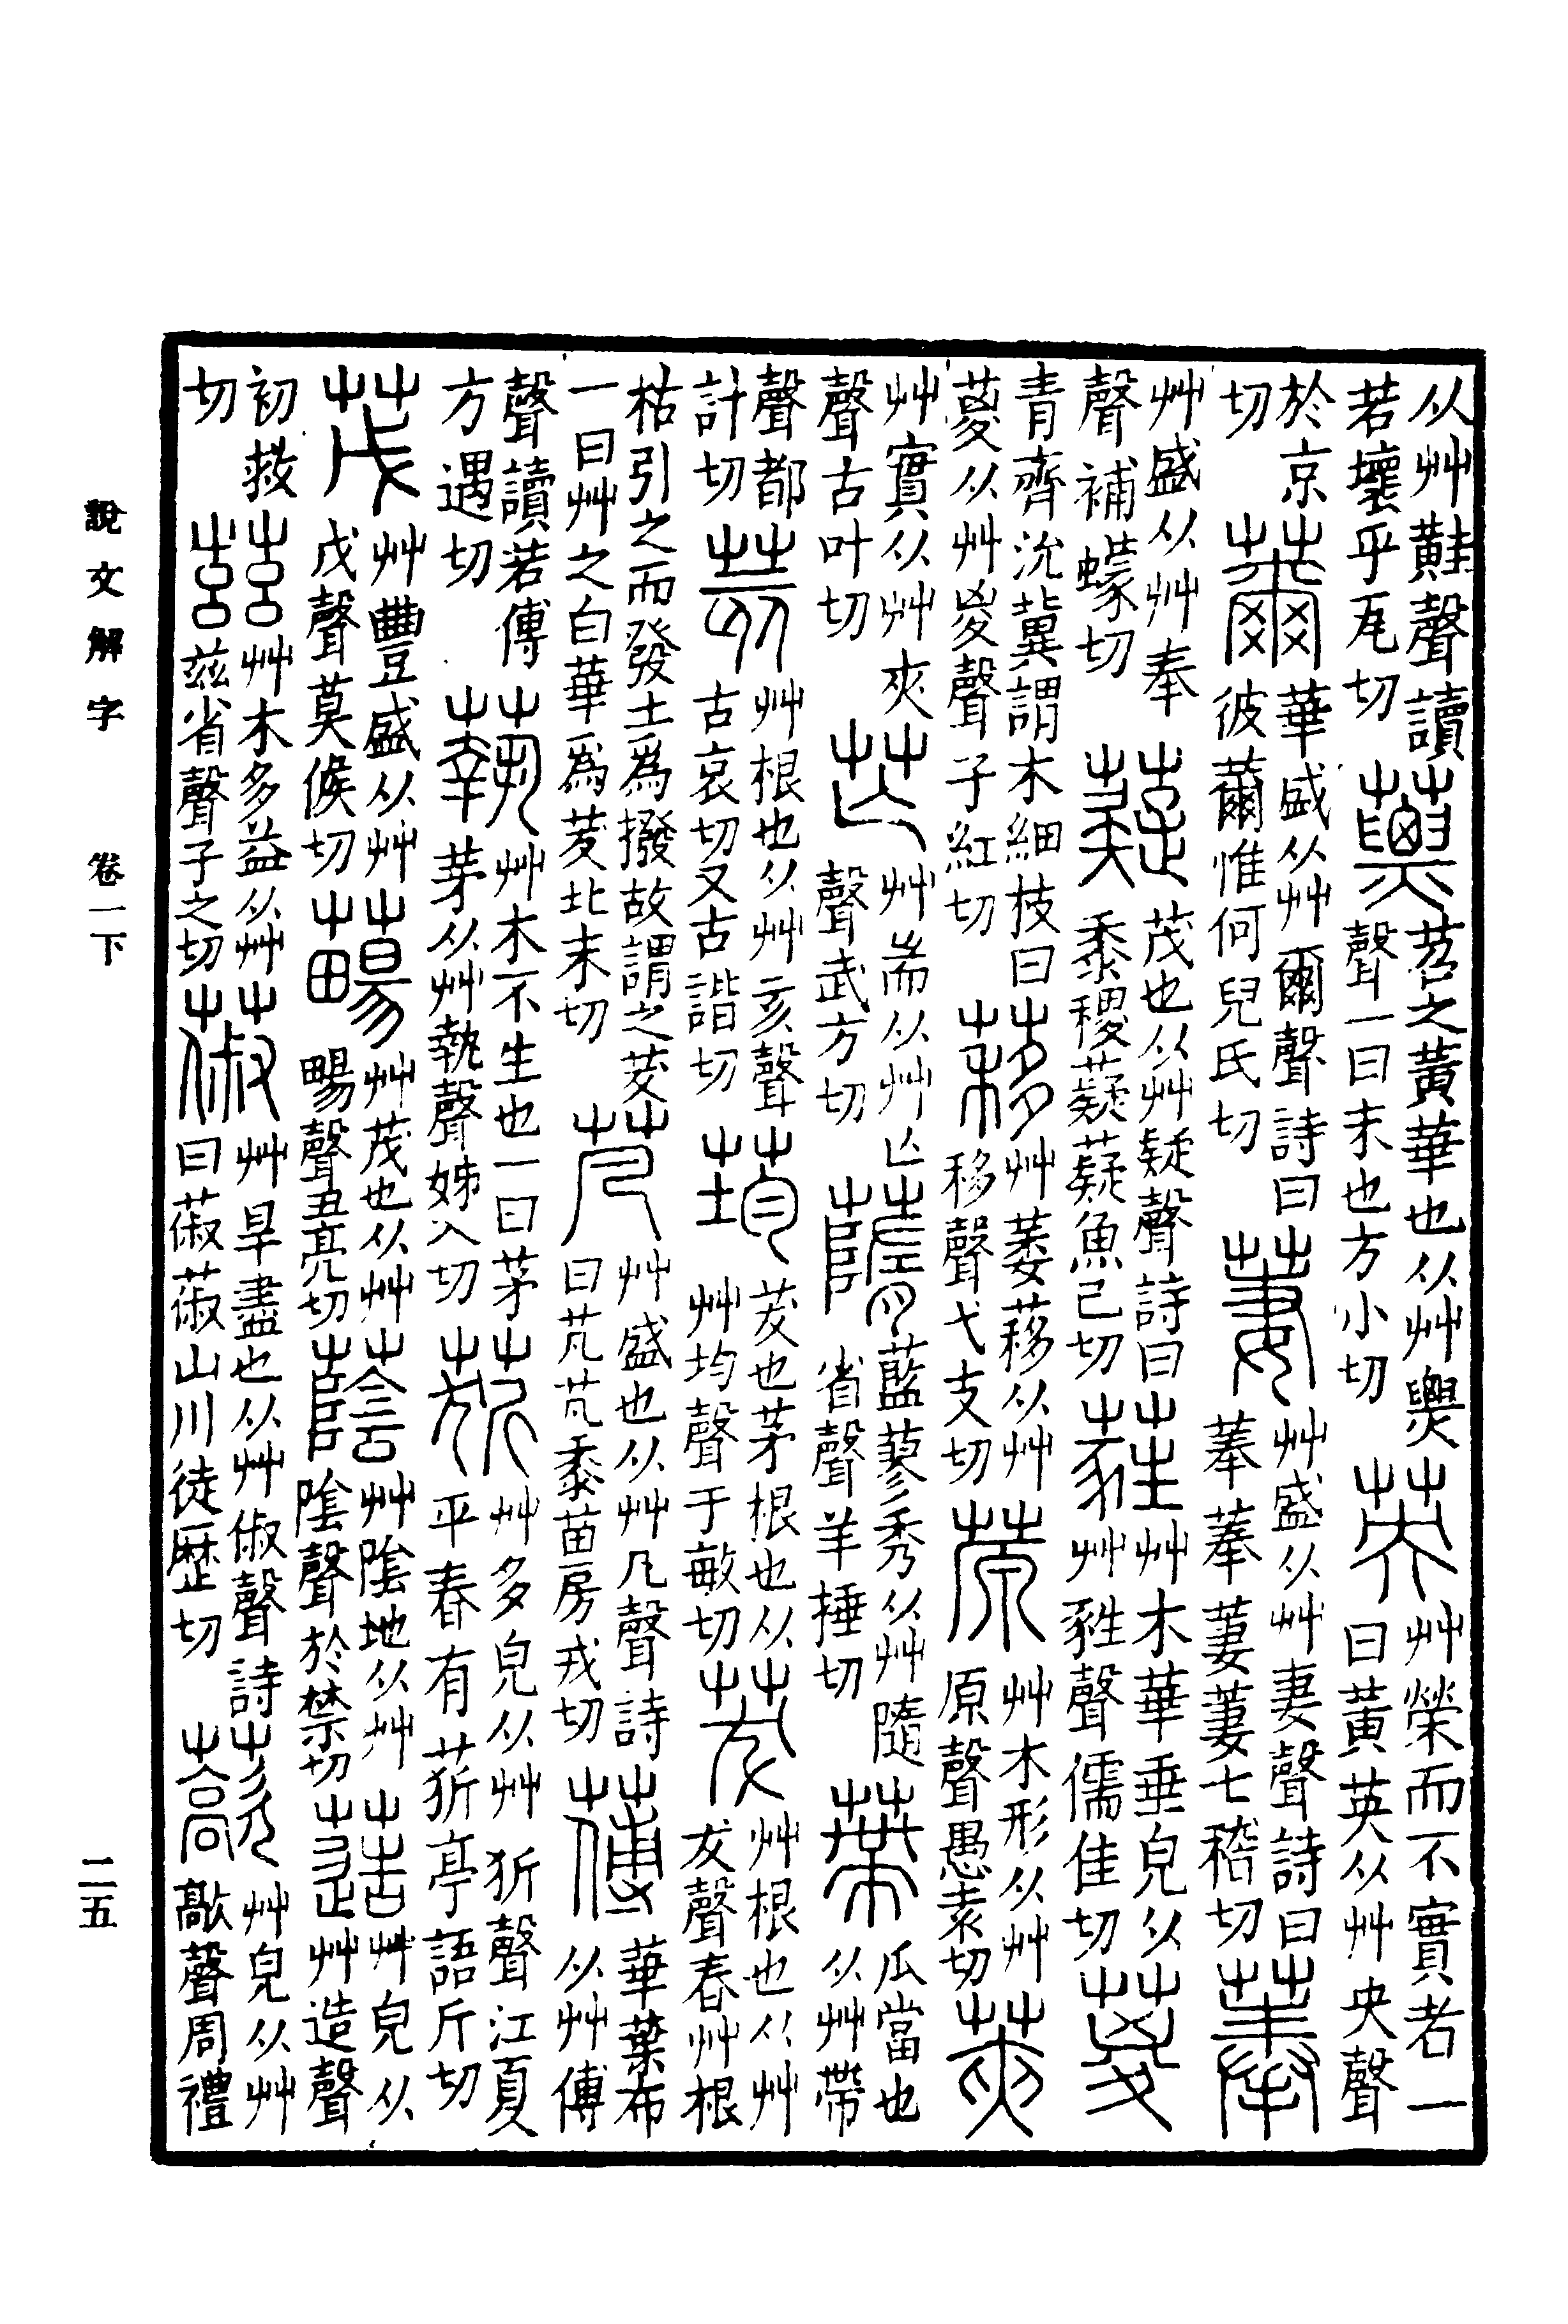 从艸黊聲讀若壞乎瓦切 蔈 苕之黃華也从艸㶾聲一曰末也方小切 英 艸榮而不實者一曰黃英从艸央聲
於京切 薾 華盛从艸爾聲詩曰彼薾惟何兒氏切 萋 艸盛从艸妻聲詩曰菶菶萋萋七稽切 菶
艸盛从艸奉聲補蠓切 薿 茂也从艸疑聲詩曰黍稷薿薿魚己切 蕤 艸木華垂皃从艸甤聲儒佳切 葼
青齊沇冀謂木細枝曰葼从艸㚇聲子紅切 䔟 艸萎䔟从艸移聲弋支切 蒝 艸木形从艸原聲愚袁切 莢
艸實从艸夾聲古叶切 芒 艸耑从艸亡聲武方切 藍蓼秀从艸隨省聲羊捶切 蔕 瓜當也从艸帶
聲都計切 荄 艸根也从艸亥聲古哀切又古諧切 荺 茇也茅根也从艸均聲于敏切 茇 艸根也从艸犮聲春艸根
枯引之而發土爲撥故謂之茇一曰艸之白華爲茇北末切 芃 艸盛也从艸凡聲詩曰芃芃黍苗房戎切 華葉布从艸傅
聲讀若傅方遇切 蓻 艸木不生也一曰茅芽从艸執聲姊入切 艸多皃从艸㹞聲江夏平春有亭語斤切
茂 艸豐盛从艸戊聲莫候切 艸茂也从艸畼聲丑亮切 蔭 艸陰地从艸陰聲於禁切 艸皃从艸造聲
初救切 茲 艸木多益从艸茲省聲子之切 蔋 艸旱盡也从艸俶聲詩曰蔋蔋山川徒歷切 藃 艸皃从艸歊聲周禮
說文解字 卷一下 二五